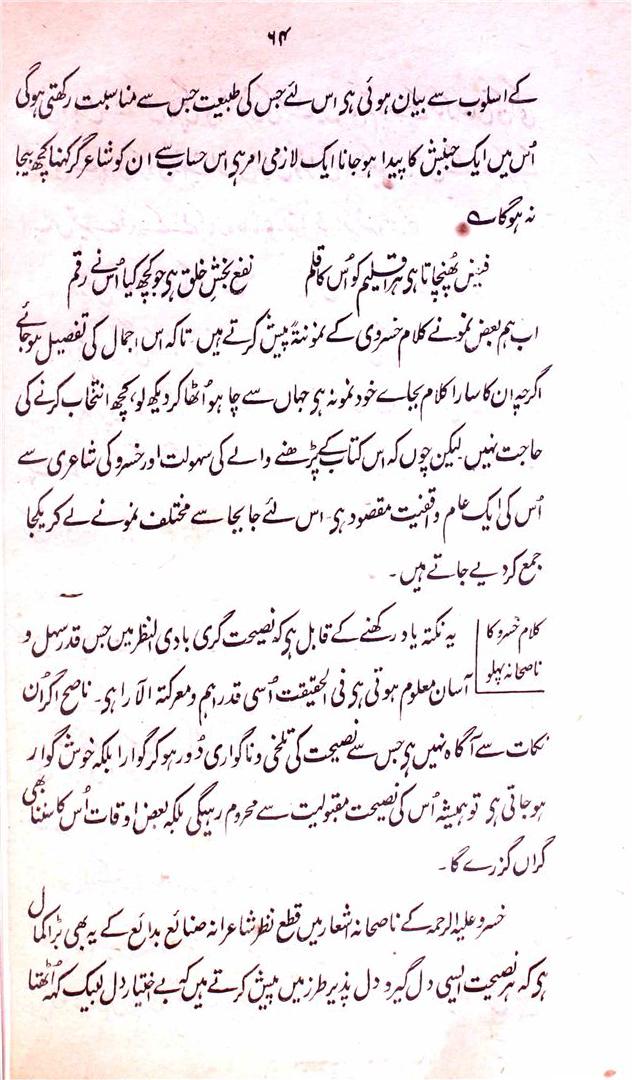 ۶۴
کے اسلوب سے بیان ہوئی ہی اس لئے جس کی طبیعت جس سے مناسبت رکھتی ہوگی
اُس میں ایک جنبش کا پیدا ہوجانا ایک لازمی امر ہی اس حساب سے ان کو شاعر گر کہنا کچھ بیجا
نہ ہوگا ؎
فیض پُہنچاتا ہی ہر اقلیم کو اُس کا قلم نفع بخشِ خلق ہی جو کچھ کیا اُس نے رقم
اب ہم بعض نمونے کلام خسروی کے نمونۃً پیش کرتے ہیں تاکہ اس اجمال کی تفصیل ہوجائے
اگرچہ ان کا سارا کلام بجاے خود نمونہ ہی جہاں سے چاہو اُٹھا کر دیکھ لو، کچھ انتخاب کرنے کی
حاجت نہیں لیکن چوں کہ اس کتاب کے پڑھنے والے کی سہولت اور خسرو کی شاعری سے
اُس کی ایک عام واقفیت مقصود ہی۔ اس لئے جابجا سے مختلف نمونے لے کر یکجا
جمع کر دیے جاتے ہیں۔
کلام خسرو کا
ناصحانہ پہلو
یہ نکتہ یاد رکھنے کے قابل ہی کہ نصیحت گری بادی النظر میں جس قدر سہل و
آسان معلوم ہوتی ہی فی الحقیقت اُسی قدر اہم و معرکۃ الآرا ہی۔ ناصح اگر اُن
نکات سے آگاہ نہیں ہی جس سے نصیحت کی تلخی و ناگواری دُور ہو کر گوارا بلکہ خوش گوار
ہوجاتی ہی تو ہمیشہ اُس کی نصیحت مقبولیت سے محروم رہیگی بلکہ بعض اوقات اُس کا سننا بھی
گراں گزرے گا۔
خسرو علیہ الرحمہ کے ناصحانہ اشعار میں قطع نظر شاعرانہ صنائع بدائع کے یہ بھی بڑا کمال
ہی کہ ہر نصیحت ایسی دل گیر و دل پذیر طرز میں پیش کرتے ہیں کہ بے اختیار دل لبیک کہہ اُٹھتا